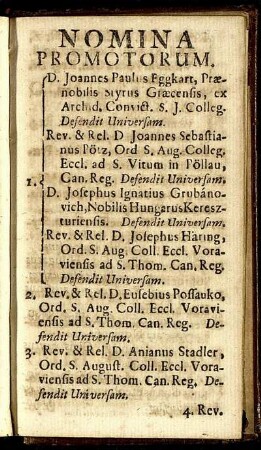 NOMINA
PROMOTORUM.
D. Joannes Paulus Eggkart, Præ-
nobilis Styrus Græcensis, ex
Archid, Convict. S. J. Colleg.
Defendit Universam.
Rev. & Rel. D Joannes Sebastia-
nus Pötz, Ord S. Aug. Colleg.
Eccl. ad S. Vitum in Pöllau,
1. Can. Reg. Defendit Universam.
D. Josephus Ignatius Grubáno-
vich, Nobilis Hungarus Keresz-
turiensis. Defendit Universam.
Rev. & Rel. D, Josephus Häring,
Ord. S. Aug. Coll. Eccl. Vora-
viensis ad S. Thom. Can. Reg.
Defendit Universam.
2. Rev. & Rel. D. Eusebius Possauko,
Ord. S. Aug. Coll. Eccl. Voravi-
ensis ad S. Thom. Can. Reg. De-
fendit Universam.
3. Rev. & Rel. D. Anianus Stadler,
Ord. S. August. Coll. Eccl. Vora-
viensis ad S. Thom. Can. Reg, De-
fendit Universam.
4. Rev.